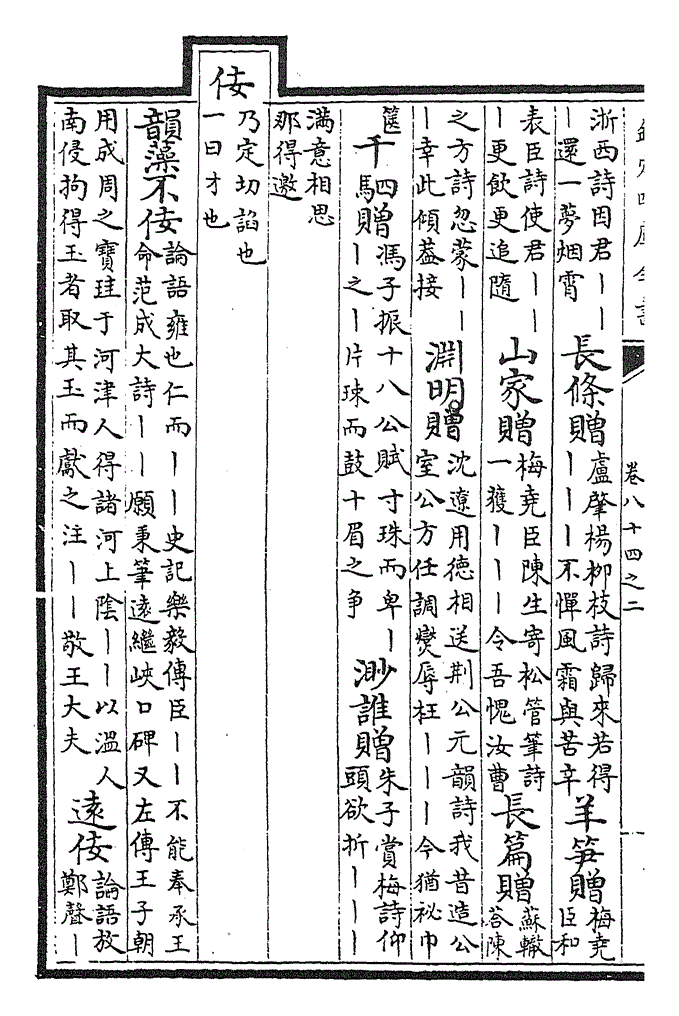 卷八十四之二
浙西詩因君丨丨
丨還一夢烟霄
長條贈
盧肇楊柳枝詩歸來若得
丨丨丨不憚風霜與苦辛
羊笋贈
梅堯
臣和
表臣詩使君丨丨
丨更飲更追隨
山家贈
梅堯臣陳生寄松管筆詩
一獲丨丨丨令吾愧汝曹
長篇贈
蘇轍
荅陳
之方詩忽蒙丨丨
丨幸此傾葢接
淵明贈
沈遼用德相送荆公元韻詩我昔造公
室公方任調燮辱枉丨丨丨今猶祕巾
篋
千駟贈
馮子振十八公賦寸珠而卑丨
丨之丨片琜而鼓十眉之争
渺誰贈
朱子賞梅詩仰
頭欲折丨丨丨
滿意相思
那得邀
佞
乃定切諂也
一曰才也
韻藻不佞
論語雍也仁而丨丨史記樂毅傳臣丨丨不能奉承王
命范成大詩丨丨願秉筆遠繼峽口碑又左傳王子朝
用成周之寶珪于河津人得諸河上陰丨丨以溫人
南侵拘得玉者取其玉而獻之注丨丨敬王大夫
遠佞
論語放
鄭聲丨